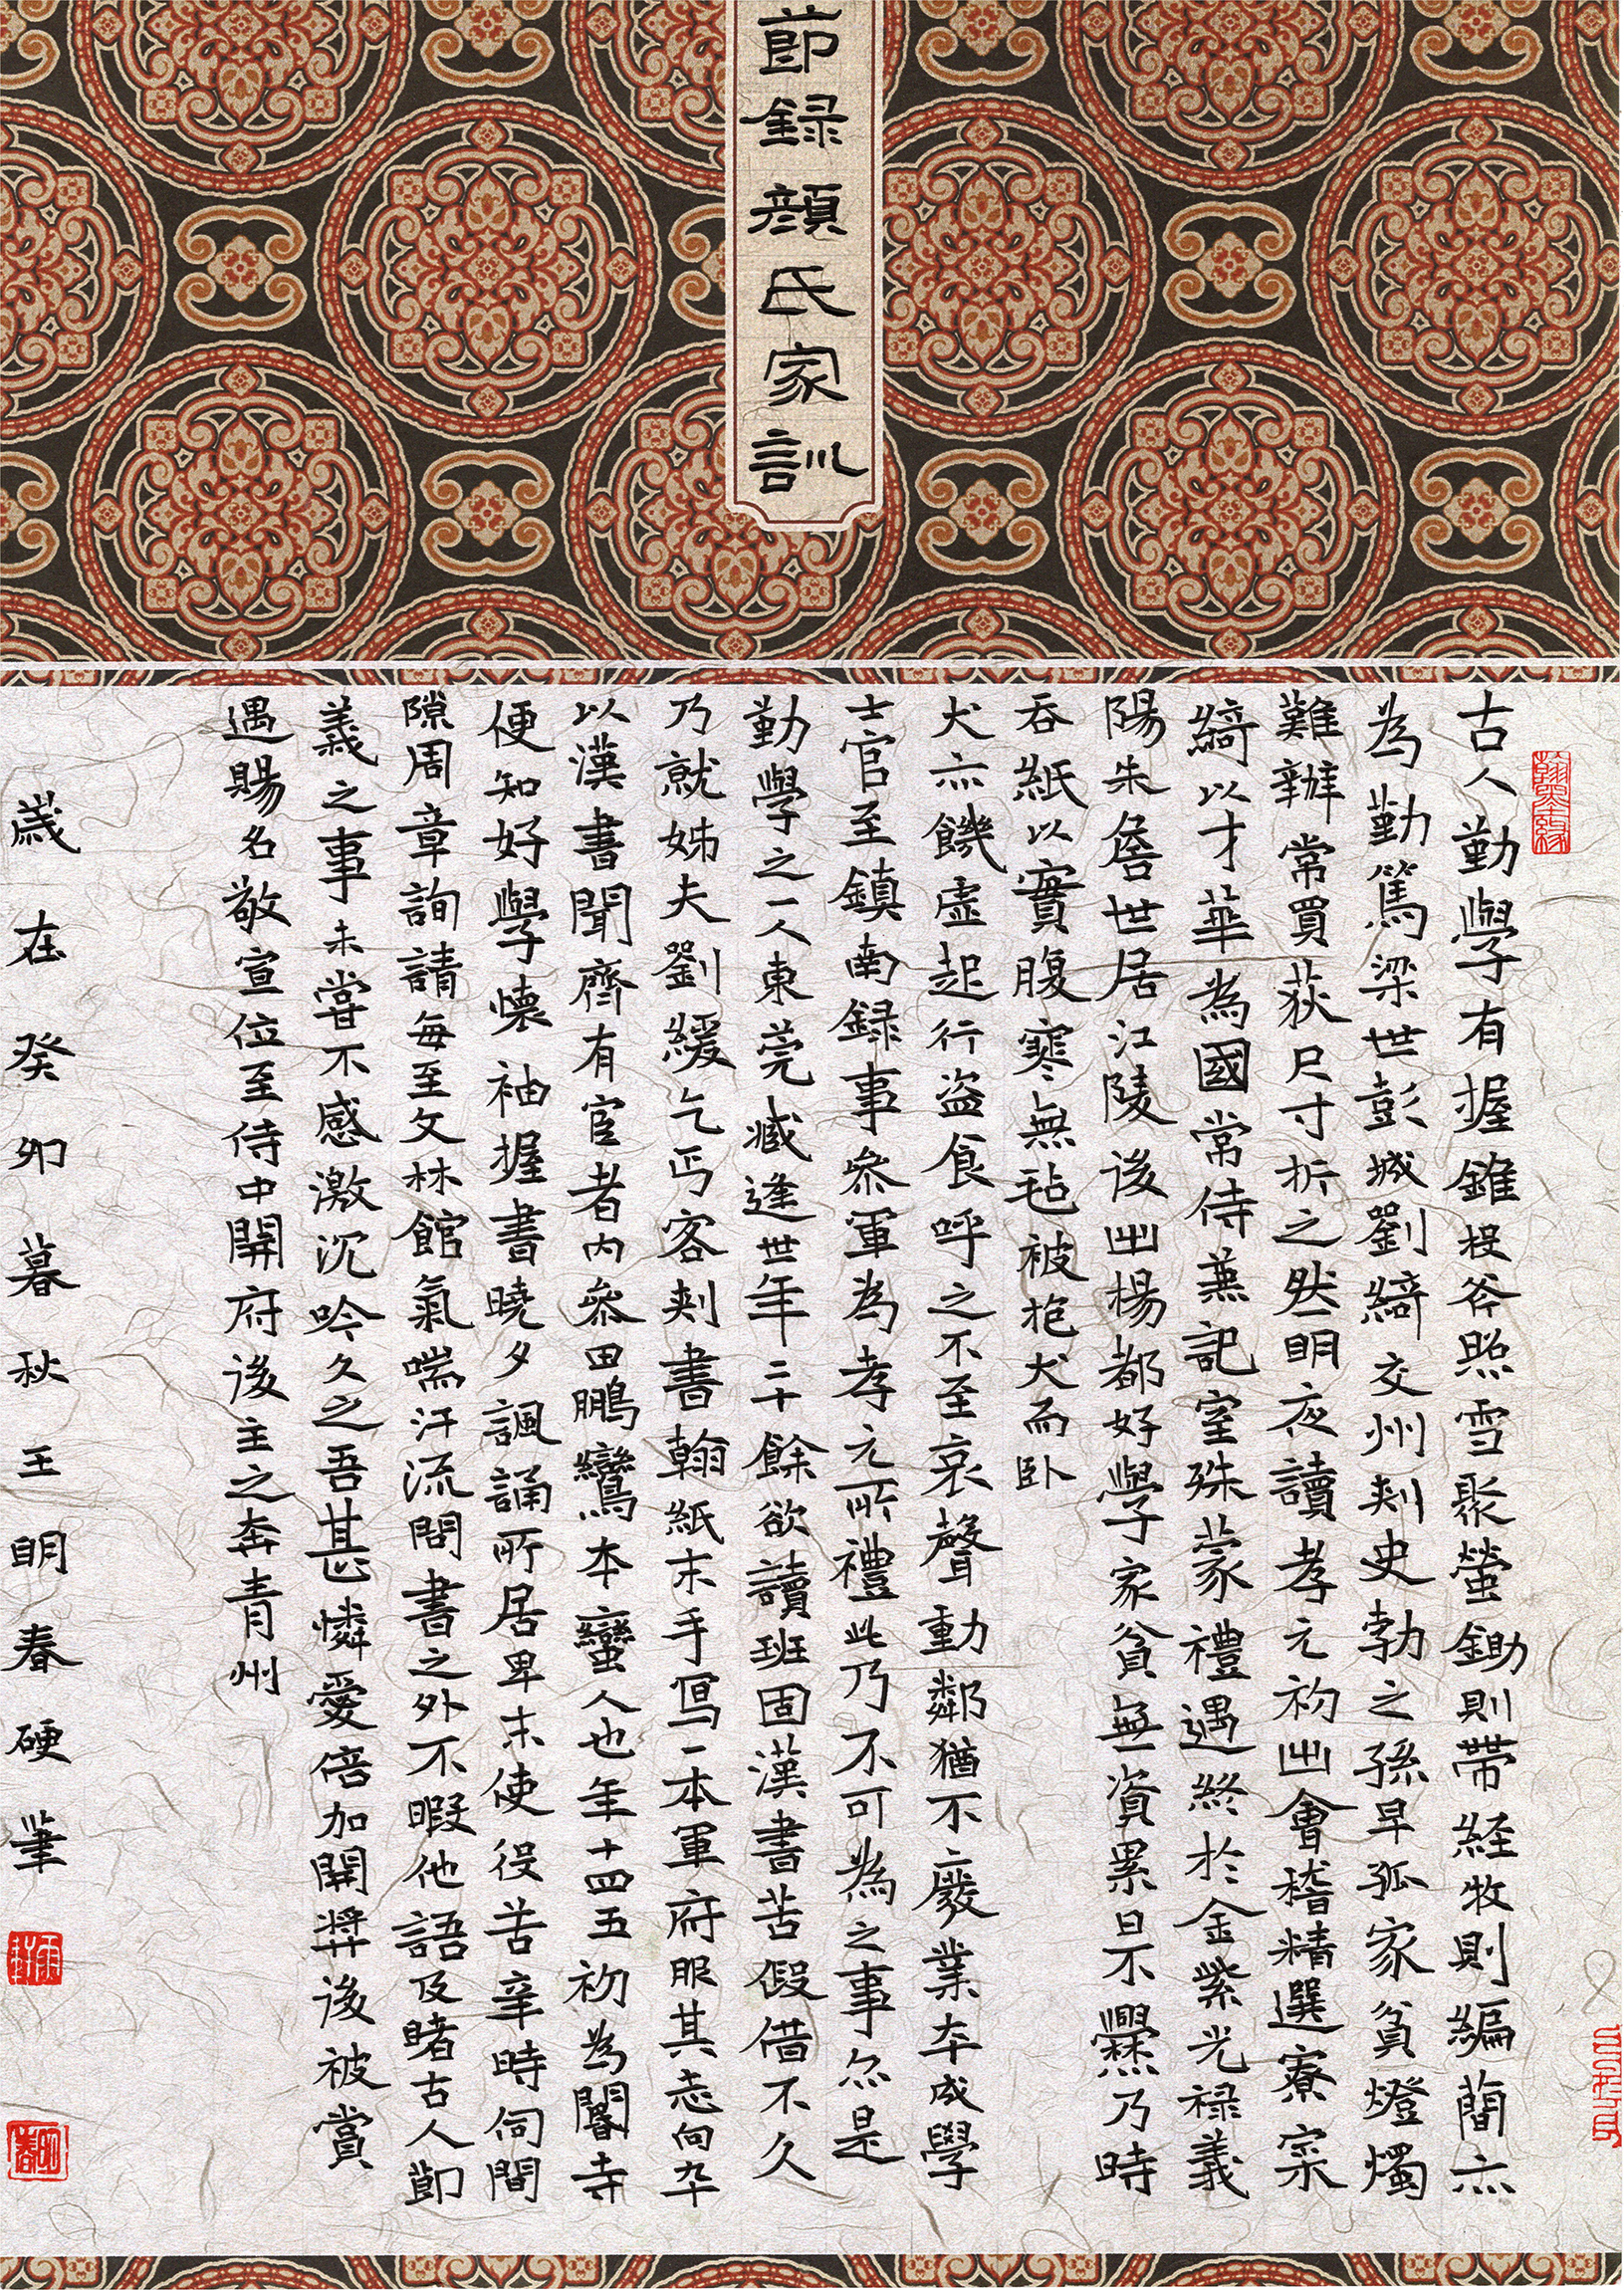 節録顔氏家訓
古人勤學有握錐投斧照雪聚螢鋤則帶経牧則編蕳亦
為勤篤梁世彭城劉綺交州刺史勃之孫早孤家貧燈燭
難辦常買荻尺寸折之然明夜讀孝元初出會稽精選寮寀
綺以才華為國常侍兼記室殊蒙禮遇終於金紫光禄義
陽朱詹世居江陵後出楊都好學家貧無資累日不爨乃時
吞紙以實腹寒無毡被抱犬而卧
犬亦饑虛起行盜食呼之不至哀聲動鄰猶不廢業卒成學
士官至鎮南録事叅軍為孝元所禮此乃不可為之事亦是
勤學之一人東莞臧逢世年二十餘欲讀班固漢書苦假借不久
乃就姊夫劉緩乞丐客刺書翰紙末手寫一本軍府服其志向卒
以漢書聞齊有宦者内叅田鵬鸞本蠻人也年十四五初為閽寺
便知好學懷袖握書曉夕諷誦所居卑末使役苦辛時伺間
隙周章詢請每至文林館氣喘汗流問書之外不暇他語及睹古人節
義之事未嘗不感激沉吟久之吾甚憐愛倍加開奬後被賞
遇賜名敬宣位至侍中開府後主之奔青州
歲在癸卯暮秋王明春硬筆
翰墨緣